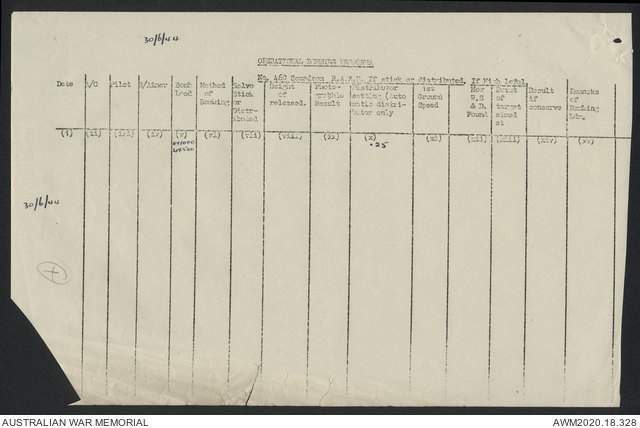 30/6/44
OPERATIONAL BOMBING PROFORMA
No. 460 Squadron R.A.A.F. If stick or distributed. If High level.
Date A/C Pilot B/Aimer Bomb Load Method of Bombing Salvo Stick or Distributed Height of released. Photographic Result Distributor setting (Automatic distributor only 1st Ground Speed How W.S & D. Found Point of target aimed at Result if conserve Remarks of Bombing Ldr.
(i) (ii) (iii) (iv) (v) (vi) (vii) (viii) (ix) (x) (xi) (xii) (xiii) (xiv) (xv)
.25
30/6/44
AUSTRALIAN WAR MEMORIAL
AWM2020.18.328